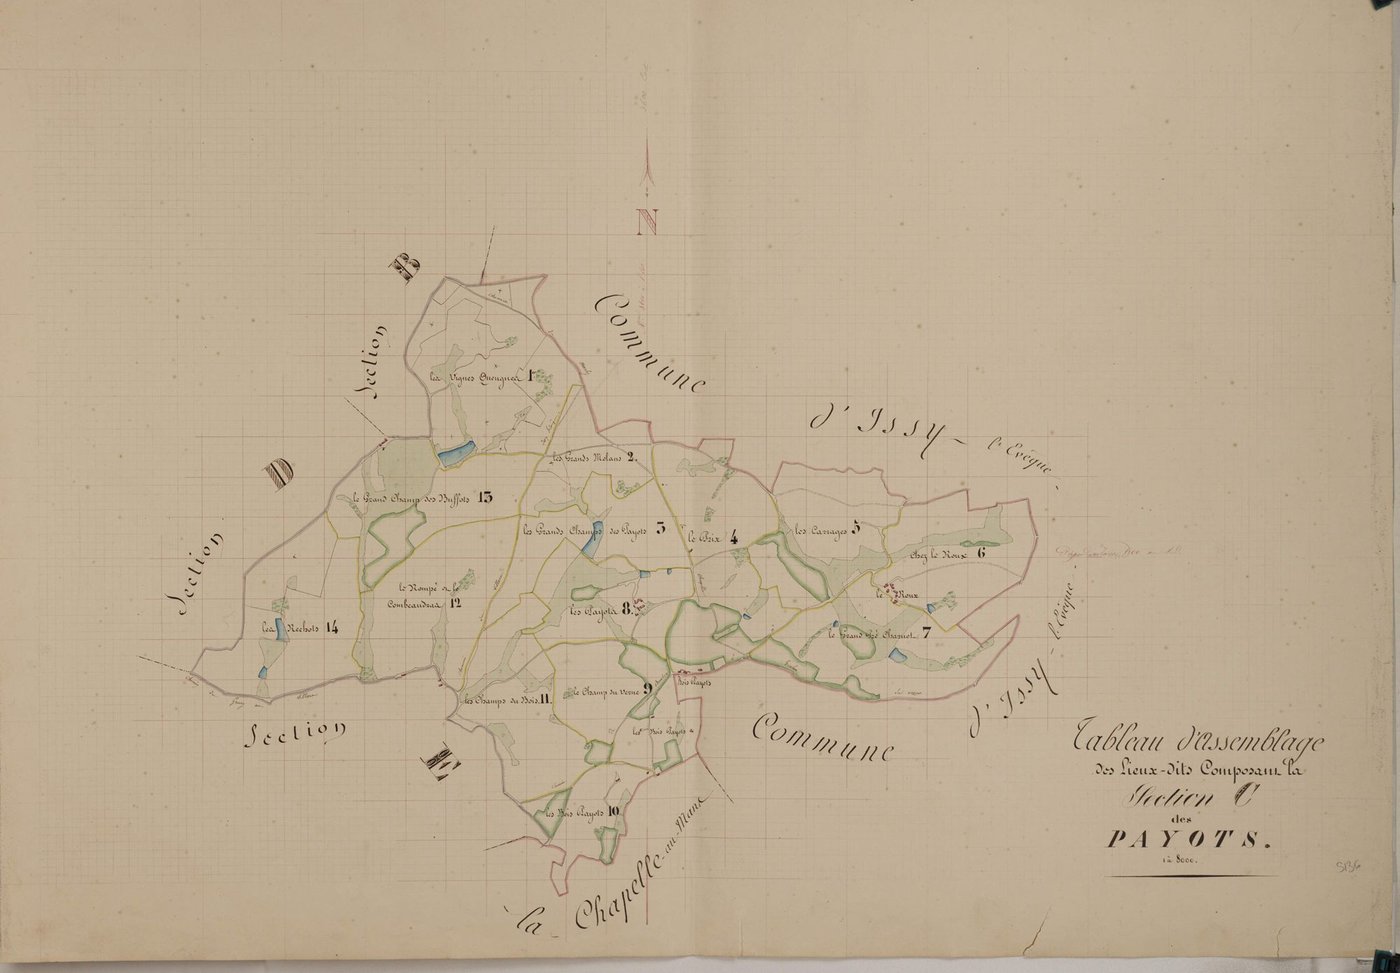 N
B
Section
D
Section
Section
E
Commune
d'Issy-
l'Evêque
Commune
d'Issy-
l'Evêque
la Chapelle-au-Mans
les Vignes 1
les Grands Molans 2.
les Grands Champs des Payots 3
le Brix 4
les Carrages 5
chez le Roux 6
le Roux
le Grand Pré Charnot 7
les Payots 8.
le Champ du Verne 9
Bois Payots
les Bois Payots 10
les Champs du Bois. 11
le Rompé de la
Combeaudraa 12
le Grand Champ des Buffots 13
les Rechots 14
Tableau d'assemblage
des Lieux-dits Composant la
Section C
des
PAYOTS.
1 à 8000.